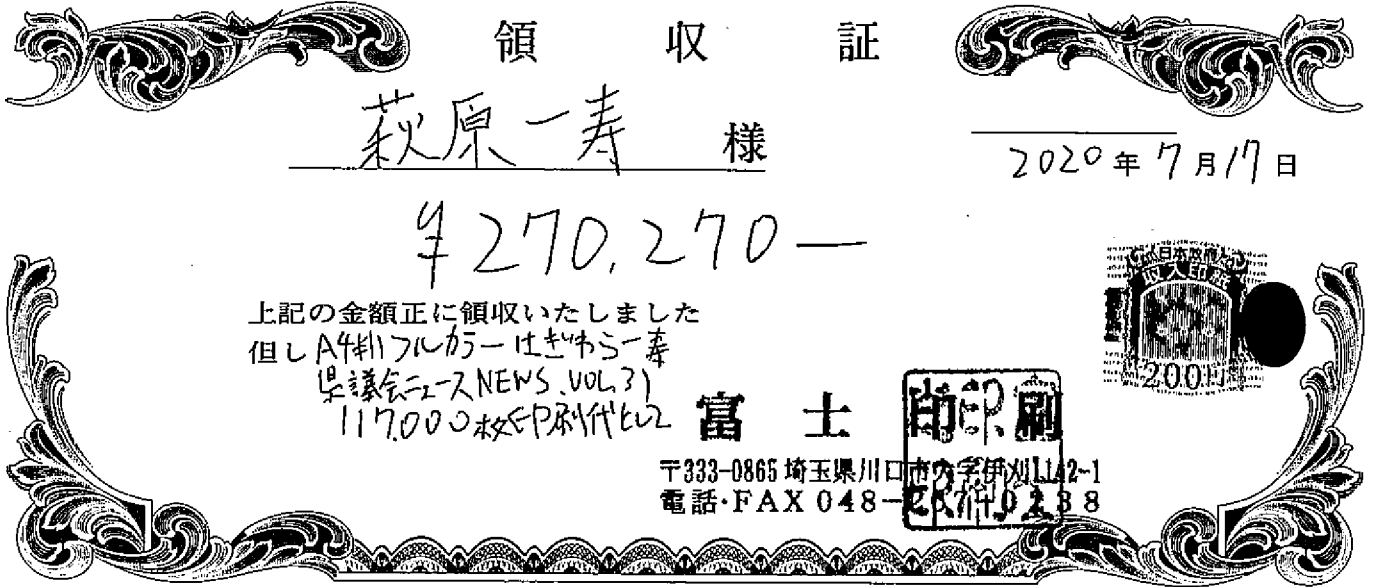 領収証
萩原一寿 様
2020年7月17日
¥270,270—
上記の金額正に領収いたしました
但し A4判フルカラーはぎわら一寿
県議会ニュースNEWS.VOL31
117.000枚印刷代として
日本政府
収入印紙
200円
富士印刷
〒333-0865 埼玉県川口市大字伊刈1142-1
電話・FAX 048-